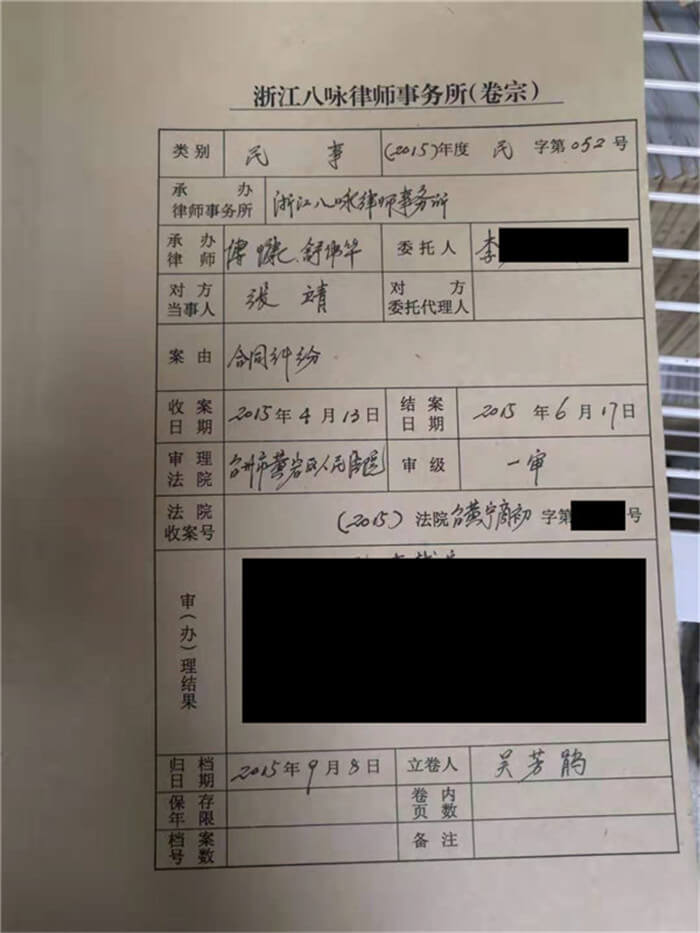 浙江八咏律师事务所(卷宗)
类别 民事 (2015)年度 民 字第052号
承办律师事务所 浙江八咏律师事务所
承办律师 傅 舒伟华 委托人 李
对方当事人 张靖 对方委托代理人
案由 合同纠纷
收案日期 2015年4月13日 结案日期 2015年6月17日
审理法院 台州市黄岩区人民法院 审级 一审
法院收案号 (2015)法院台黄宁商初字第 号
审(办)理结果
归档日期 2015年9月8日 立卷人 吴芳鹃
保存年限 卷内页数
档案号数 备注